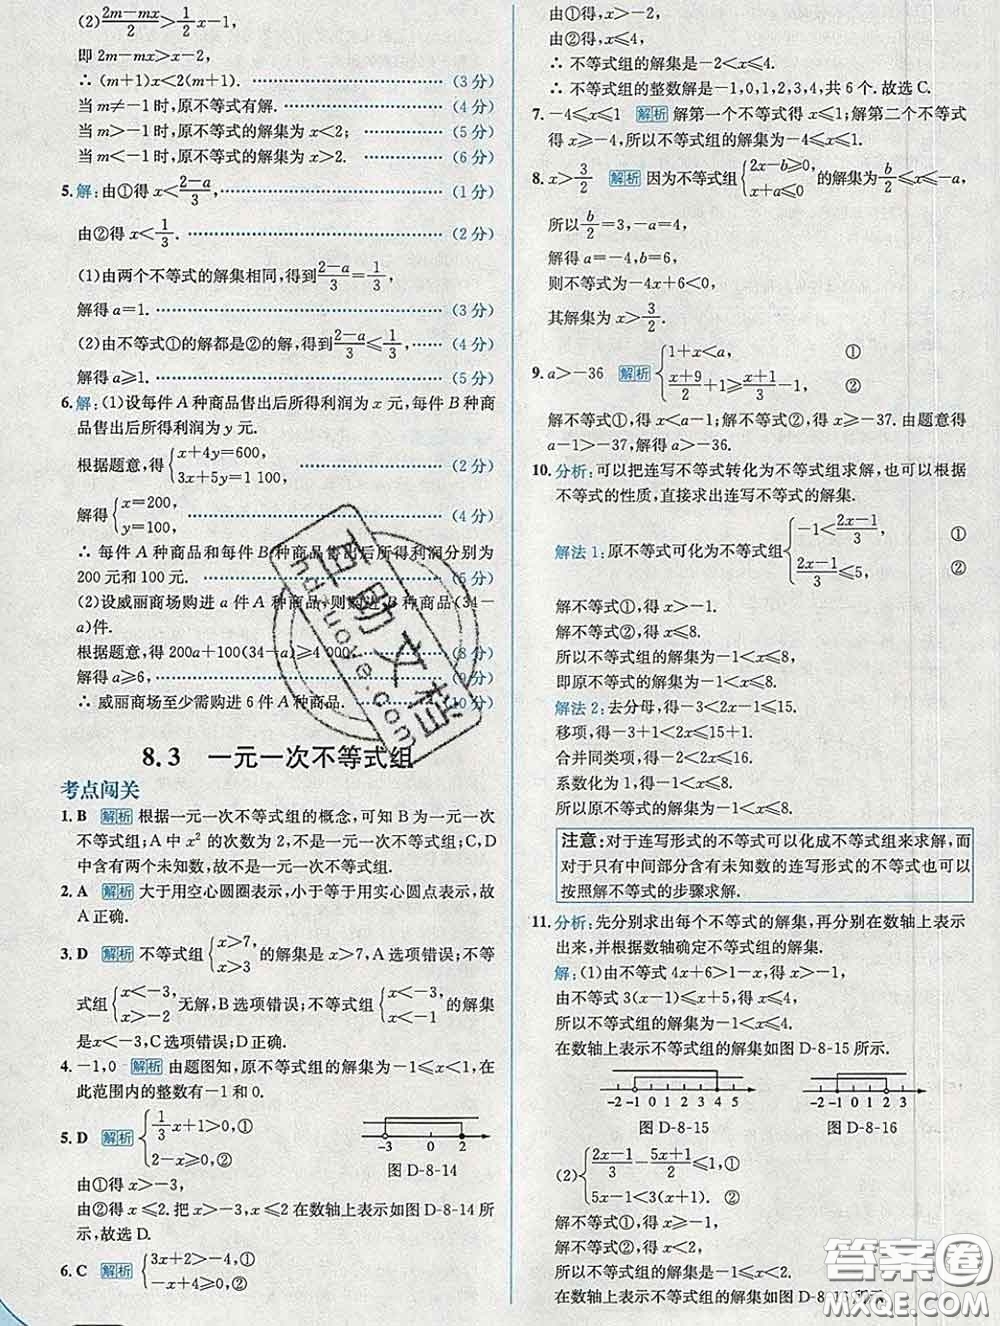 (2) (2m-mx)/2>1/2x-1,
即 2m-mx>x-2,
∴ (m+1)x<2(m+1). …… (3 分)
当 m≠-1时,原不等式有解. …… (4 分)
当 m>-1时,原不等式的解集为 x<2; …… (5 分)
当 m<-1时,原不等式的解集为 x>2. …… (6 分)
5. 解:由①得 x<(2-a)/3, …… (1 分)
由②得 x<1/3. …… (2 分)
(1)由两个不等式的解集相同,得到(2-a)/3=1/3,
解得 a=1. …… (3 分)
(2)由不等式①的解都是②的解,得到(2-a)/3≤1/3, …… (4 分)
解得 a≥1. …… (5 分)
6. 解:(1)设每件 A 种商品售出后所得利润为 x 元,每件 B 种商
品售出后所得利润为 y 元.
根据题意,得{x+4y=600, 3x+5y=1 100, …… (2 分)
解得{x=200, y=100, …… (4 分)
∴ 每件 A 种商品和每件 B 种商品售出后所得利润分别为
200 元和 100 元. …… (5 分)
(2)设威丽商场购进 a 件 A 种商品,则购进 B 种商品(34-
a)件.
根据题意,得 200a+100(34-a)≥4 000 …… (8 分)
解得 a≥6, …… (9 分)
∴ 威丽商场至少需购进 6 件 A 种商品. …… (10 分)
8.3 一元一次不等式组
考点闯关
1. B 解析 根据一元一次不等式组的概念,可知 B 为一元一次
不等式组;A 中 x² 的次数为 2,不是一元一次不等式组;C、D
中含有两个未知数,故不是一元一次不等式组.
2. A 解析 大于用空心圆圈表示,小于等于用实心圆点表示,故
A 正确.
3. D 解析 不等式组{x>7, x>3 的解集是 x>7,A 选项错误;不等
式组{x<-3, x>-2 无解,B 选项错误;不等式组{x<-3, x<-1 的解集
是 x<-3,C 选项错误;D 正确.
4. -1,0 解析 由题图知,原不等式组的解集为-1≤x<1,在
此范围内的整数有-1 和 0.
5. D 解析 {1/3x+1>0,① 2-x≥0,②
-3 0 2
图 D-8-14
由①得 x>-3,
由②得 x≤2. 把 x>-3,x≤2 在数轴上表示如图 D-8-14 所
示,故选 D.
6. C 解析 {3x+2>-4,① -x+4≥0,②
由①得,x>-2,
由②得,x≤4.
∴ 不等式组的解集是-2<x≤4.
∴ 不等式组的整数解是-1,0,1,2,3,4,共 6 个. 故选 C.
7. -4≤x≤1 解析 解第一个不等式得 x≤1;解第二个不等式
得 x≥-4,所以不等式组的解集为-4≤x≤1.
8. x>3/2 解析 因为不等式组{2x-b≥0, x+a≤0 的解集为b/2≤x≤-a,
所以b/2=3,-a=4,
解得 a=-4,b=6,
则不等式为-4x+6<0,
其解集为 x>3/2.
9. a>-36 解析 {1+x<a, ① (x+9)/2+1≥(x+1)/3-1, ②
解不等式①,得 x<a-1;解不等式②,得 x≥-37. 由题意得
a-1>-37,解得 a>-36.
10. 分析:可以把连写不等式转化为不等式组求解,也可以根据
不等式的性质,直接求出连写不等式的解集.
解法 1:原不等式可化为不等式组{-1<(2x-1)/3, ① (2x-1)/3≤5, ②
解不等式①,得 x>-1.
解不等式②,得 x≤8.
所以不等式组的解集为-1<x≤8,
即原不等式的解集为-1<x≤8.
解法 2:去分母,得-3<2x-1≤15.
移项,得-3+1<2x≤15+1.
合并同类项,得-2<2x≤16.
系数化为 1,得-1<x≤8.
注意:对于连写形式的不等式可以化成不等式组来求解,而
对于只有中间部分含有未知数的连写形式的不等式也可以
按照解不等式的步骤求解.
11. 分析:先分别求出每个不等式的解集,再分别在数轴上表示
出来,并根据数轴确定不等式组的解集.
解:(1)由不等式 4x+6>1-x,得 x>-1,
由不等式 3(x-1)≤x+5,得 x≤4,
所以不等式组的解集为-1<x≤4.
在数轴上表示不等式组的解集如图 D-8-15 所示.
-2 -1 0 1 2 3 4 5
图 D-8-15
-2 -1 0 1 2 3
图 D-8-16
(2){(2x-1)/3-(5x+1)/2≤1,① 5x-1<3(x+1). ②
解不等式①,得 x≥-1,
解不等式②,得 x<2.
所以不等式组的解集为-1≤x<2.
在数轴上表示不等式组的解集如图 D-8-16 所示
百助文档
hdzuoye.com
答案圈
MXQE.COM